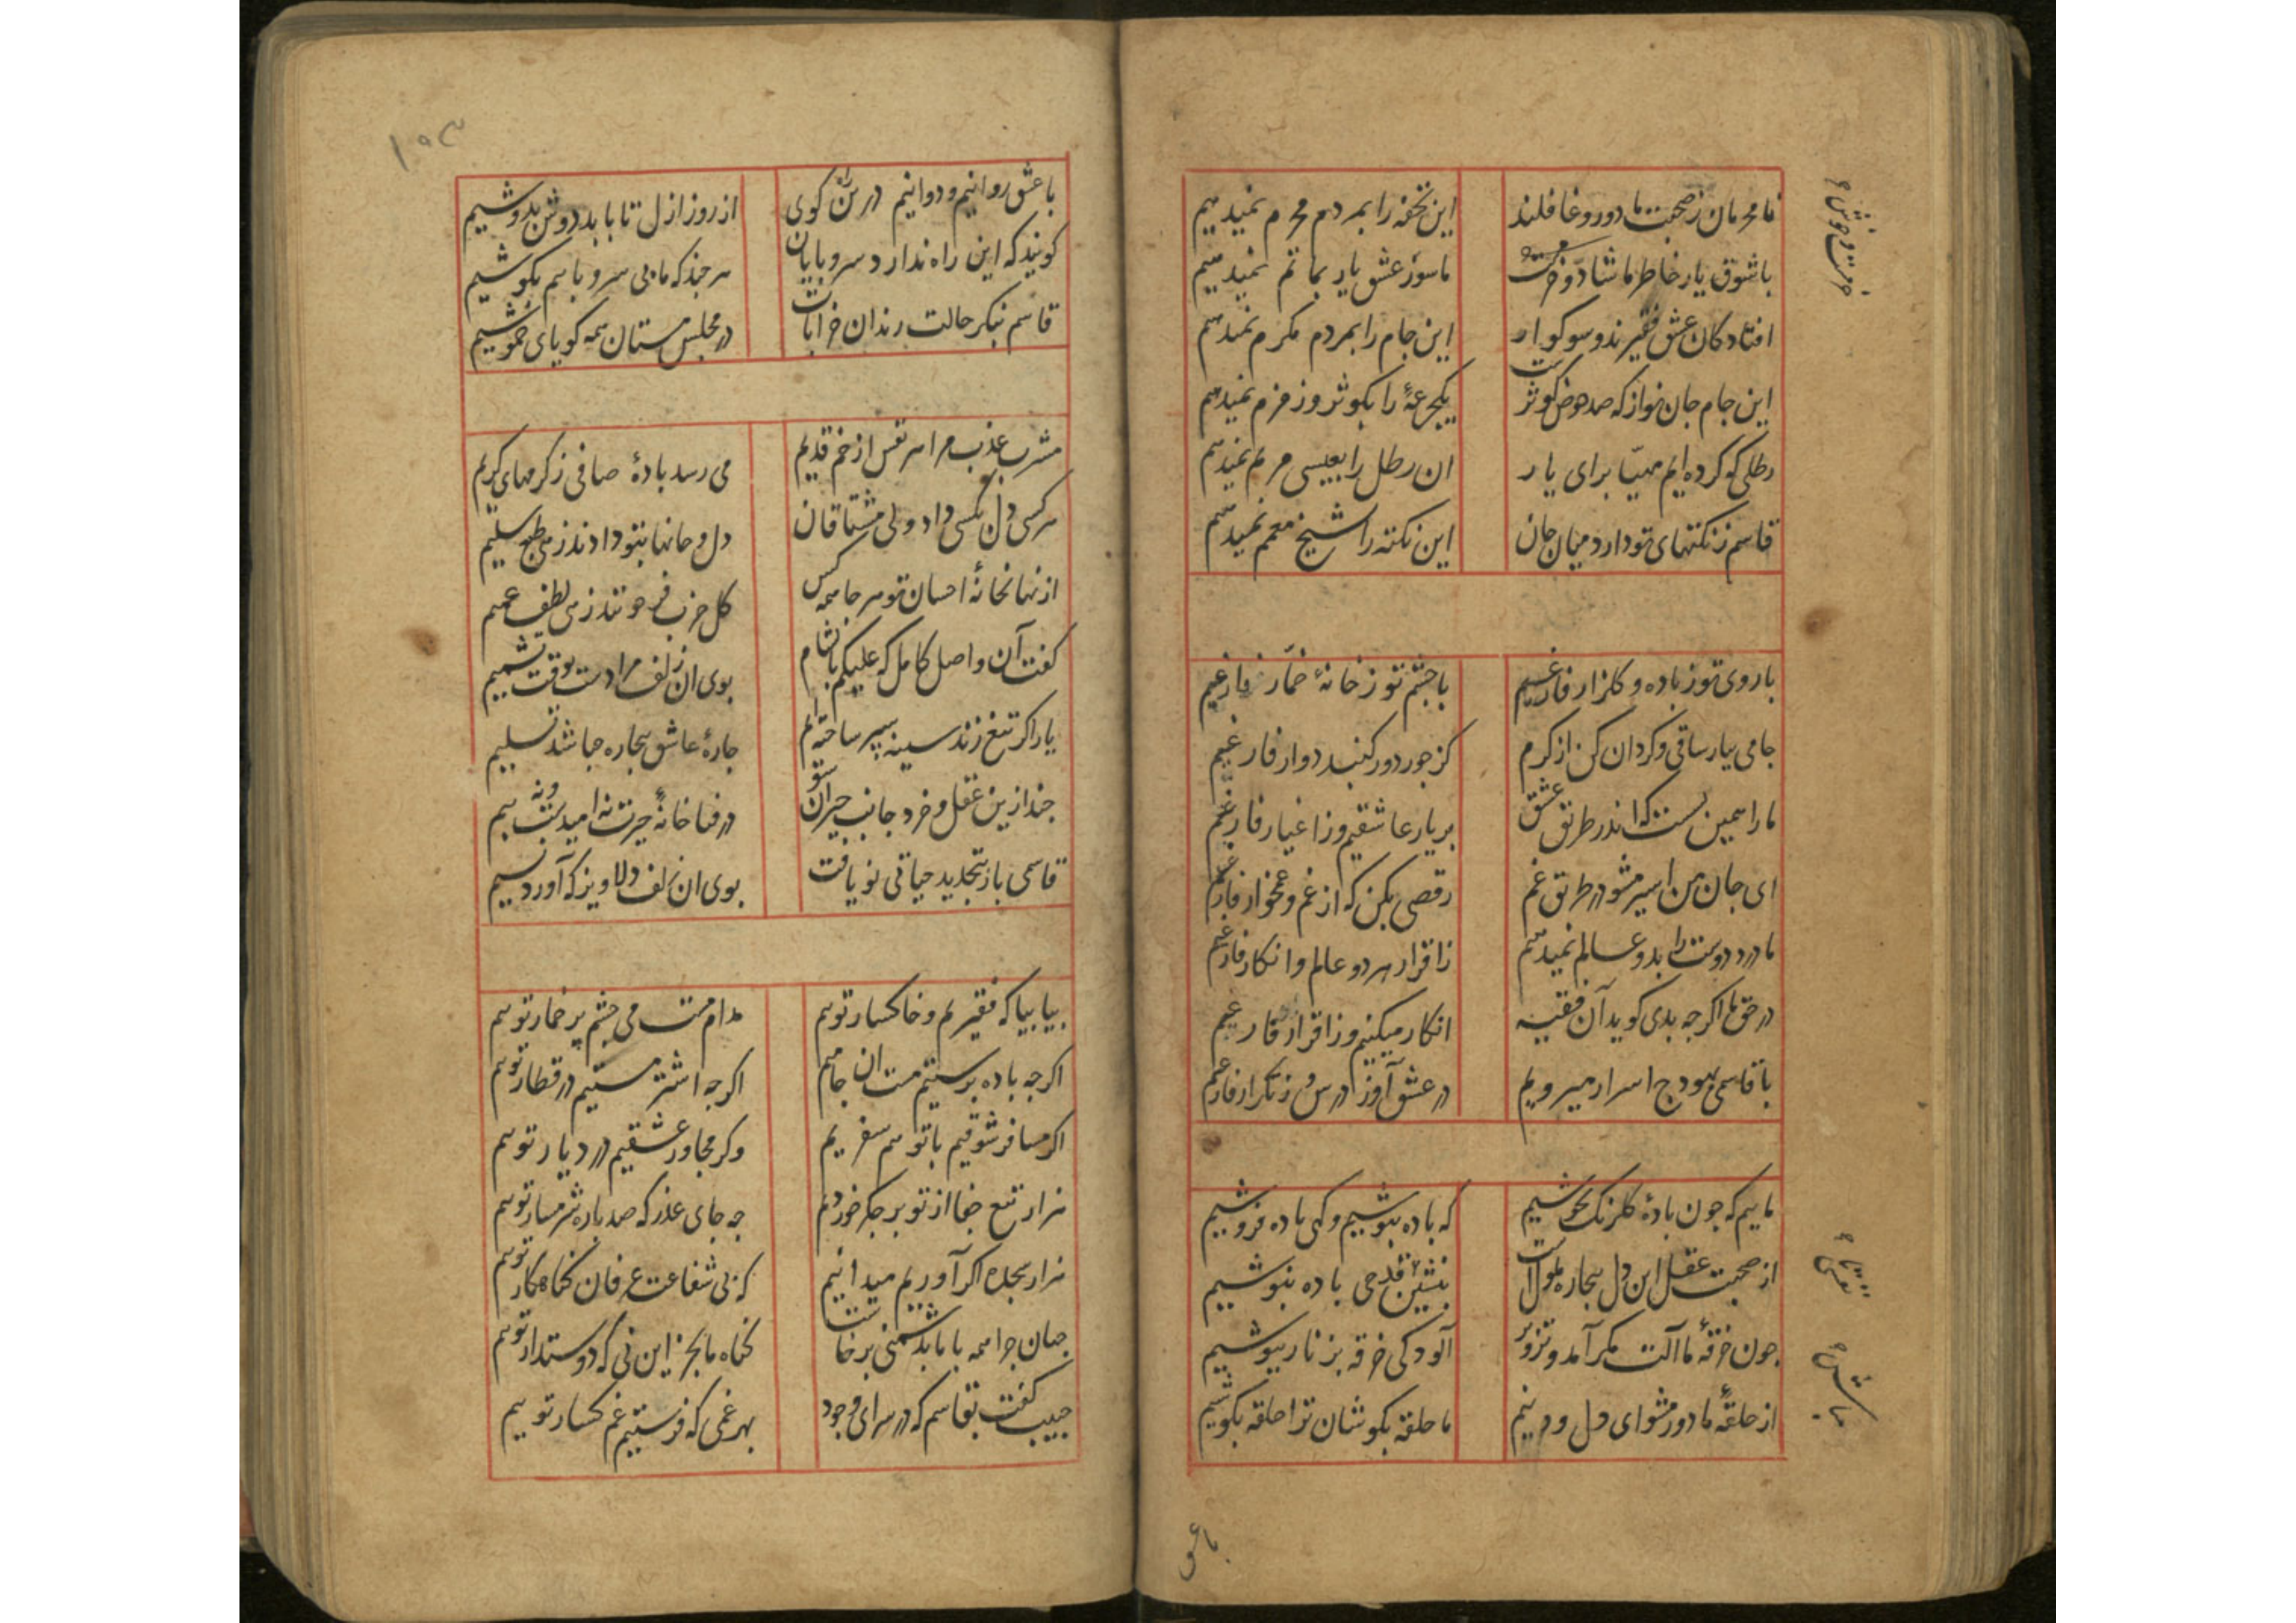 نامحرمان ز صحبت ما دور و غافلند این تحفه را بمردم محرم نمیدهیم
با شوق یار خاطر ما شاد و خرمست ما سور عشق یار بماتم نمیدهیم
افتادکان عشق فقیرند و سوکوار این جام را بمردم مکرم نمیدهیم
این جام جان نواز که صد حوض کوثرست یکجرعهٔ را بکوثر و زمزم نمیدهیم
رطلی که کرده ایم مهیّا برای یار ان رطل را بعیسی مریم نمیدهیم
قاسم ز نکتهای تو دارد میان جان این نکته را بشیخ معمم نمیدهیم
با روی تو ز باده و کلزار فارغیم با چشم تو ز خانهٔ خمّار فارغیم
جامی بیار ساقی و کردان کن از کرم کز جور دور کنبد دوار فارغیم
ما را همین بست که اندر طریق عشق بر یار عاشقیم وز اغیار فارغیم
ای جان من اسیر مشو در طریق غم رقصی بکن که از غم و غمخوار فارغیم
ما درد دوست را بدو عالم نمیدهیم ز اقرار هر دو عالم و انکار فارغیم
در حق ما اکرچه بدی کوید آن فقیه انکار میکنیم وز اقرار فارغیم
با قاسمی بهودج اسرار میرویم در عشق آو ز درس و ز تکرار فارغیم
ماییم که چون بادهٔ کلرنک بجوشیم که باده بنوشیم و کهی باده فروشیم
از صحبت عقل این دل بیچاره ملولست بنشین قدحی باده بنوشیم
چون خرقهٔ ما آلت مکر آمد و تزویر آلودکی خرقه بزنار بپوشیم
از حلقهٔ ما دور مشو ای دل و دینم ما حلقه بکوشان ترا حلقه بکوشیم
خرمست و خوش
بنشین
باش
با عشق
۱۰۳
با عشق روانیم و دوانیم درین کوی از روز ازل تا بابد دوش بدوشیم
کویند که این راه ندارد سر و پایان هر چند که ما بی سر و پاییم بکوشیم
قاسم بنکر حالت رندان خرابات در مجلس مستان همه کویای خموشیم
مشرب عذب مرا هر نفس از خم قدیم می رسد بادهٔ صافی ز کرمهای کریم
هر کسی دل بکسی داد ولی مشتاقان دل و جانها بتو دادند زهی طبع سلیم
از نهانخانهٔ احسان تو هر جا همه کس کل حزب فرحونند زهی لطف عمیم
کفت آن واصل کامل که علیکم بالشام بوی ان زلف مرا دست بوقت تشمیم
یار اکر تیغ زند سینه سپر ساخته ایم چارهٔ عاشق بیچاره چه باشد تسلیم
چند ازین عقل و خرد جانب حیرانی شو در فنا خانهٔ حیرت نه امیدست و نه بیم
قاسمی باز بتجدید حیاتی نو یافت بوی ان زلف دلاویز که آورد نسیم
بیا بیا که فقیریم و خاکسار توییم مدام مست می چشم پر خمار توییم
اکرچه باده پرستیم مست ان جامیم اکرچه اشتر مستیم در قطار توییم
اکر مسافر شوقیم با تو هم سفریم وکر مجاور عشقیم در دیار توییم
هزار تیغ جفا از تو بر جکر خوردیم چه جای عذر که صد باره شرمسار توییم
هزار سجده اکر آوریم میدانیم که بی شفاعت عرفان کناهکار توییم
جهان چرا همه با ما بدشمنی برخاست کناه ما بجز این نی که دوستدار توییم
حبیب کفت بقاسم که در سرای وجود بهر غمی که فرستیم غم کسار توییم